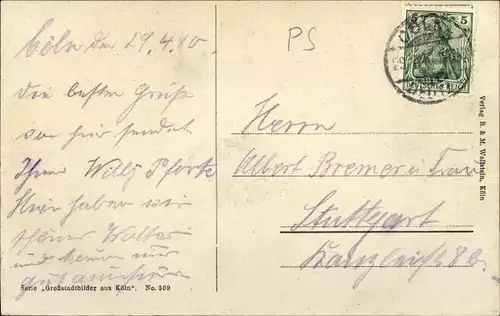 Cöln den 29.4.10.
die besten Grüße
von hier sendet
Ihnen Willy
Hier haben wir
schönes Wetter
und
PS
5 5
DEUTSCHES REICH
Herrn
Albert Bremer u Frau
Stuttgart
Kanzleistr 8 b.
Verlag B. & M. Wollstein, Köln
Serie „Großstadtbilder aus Köln". No. 509